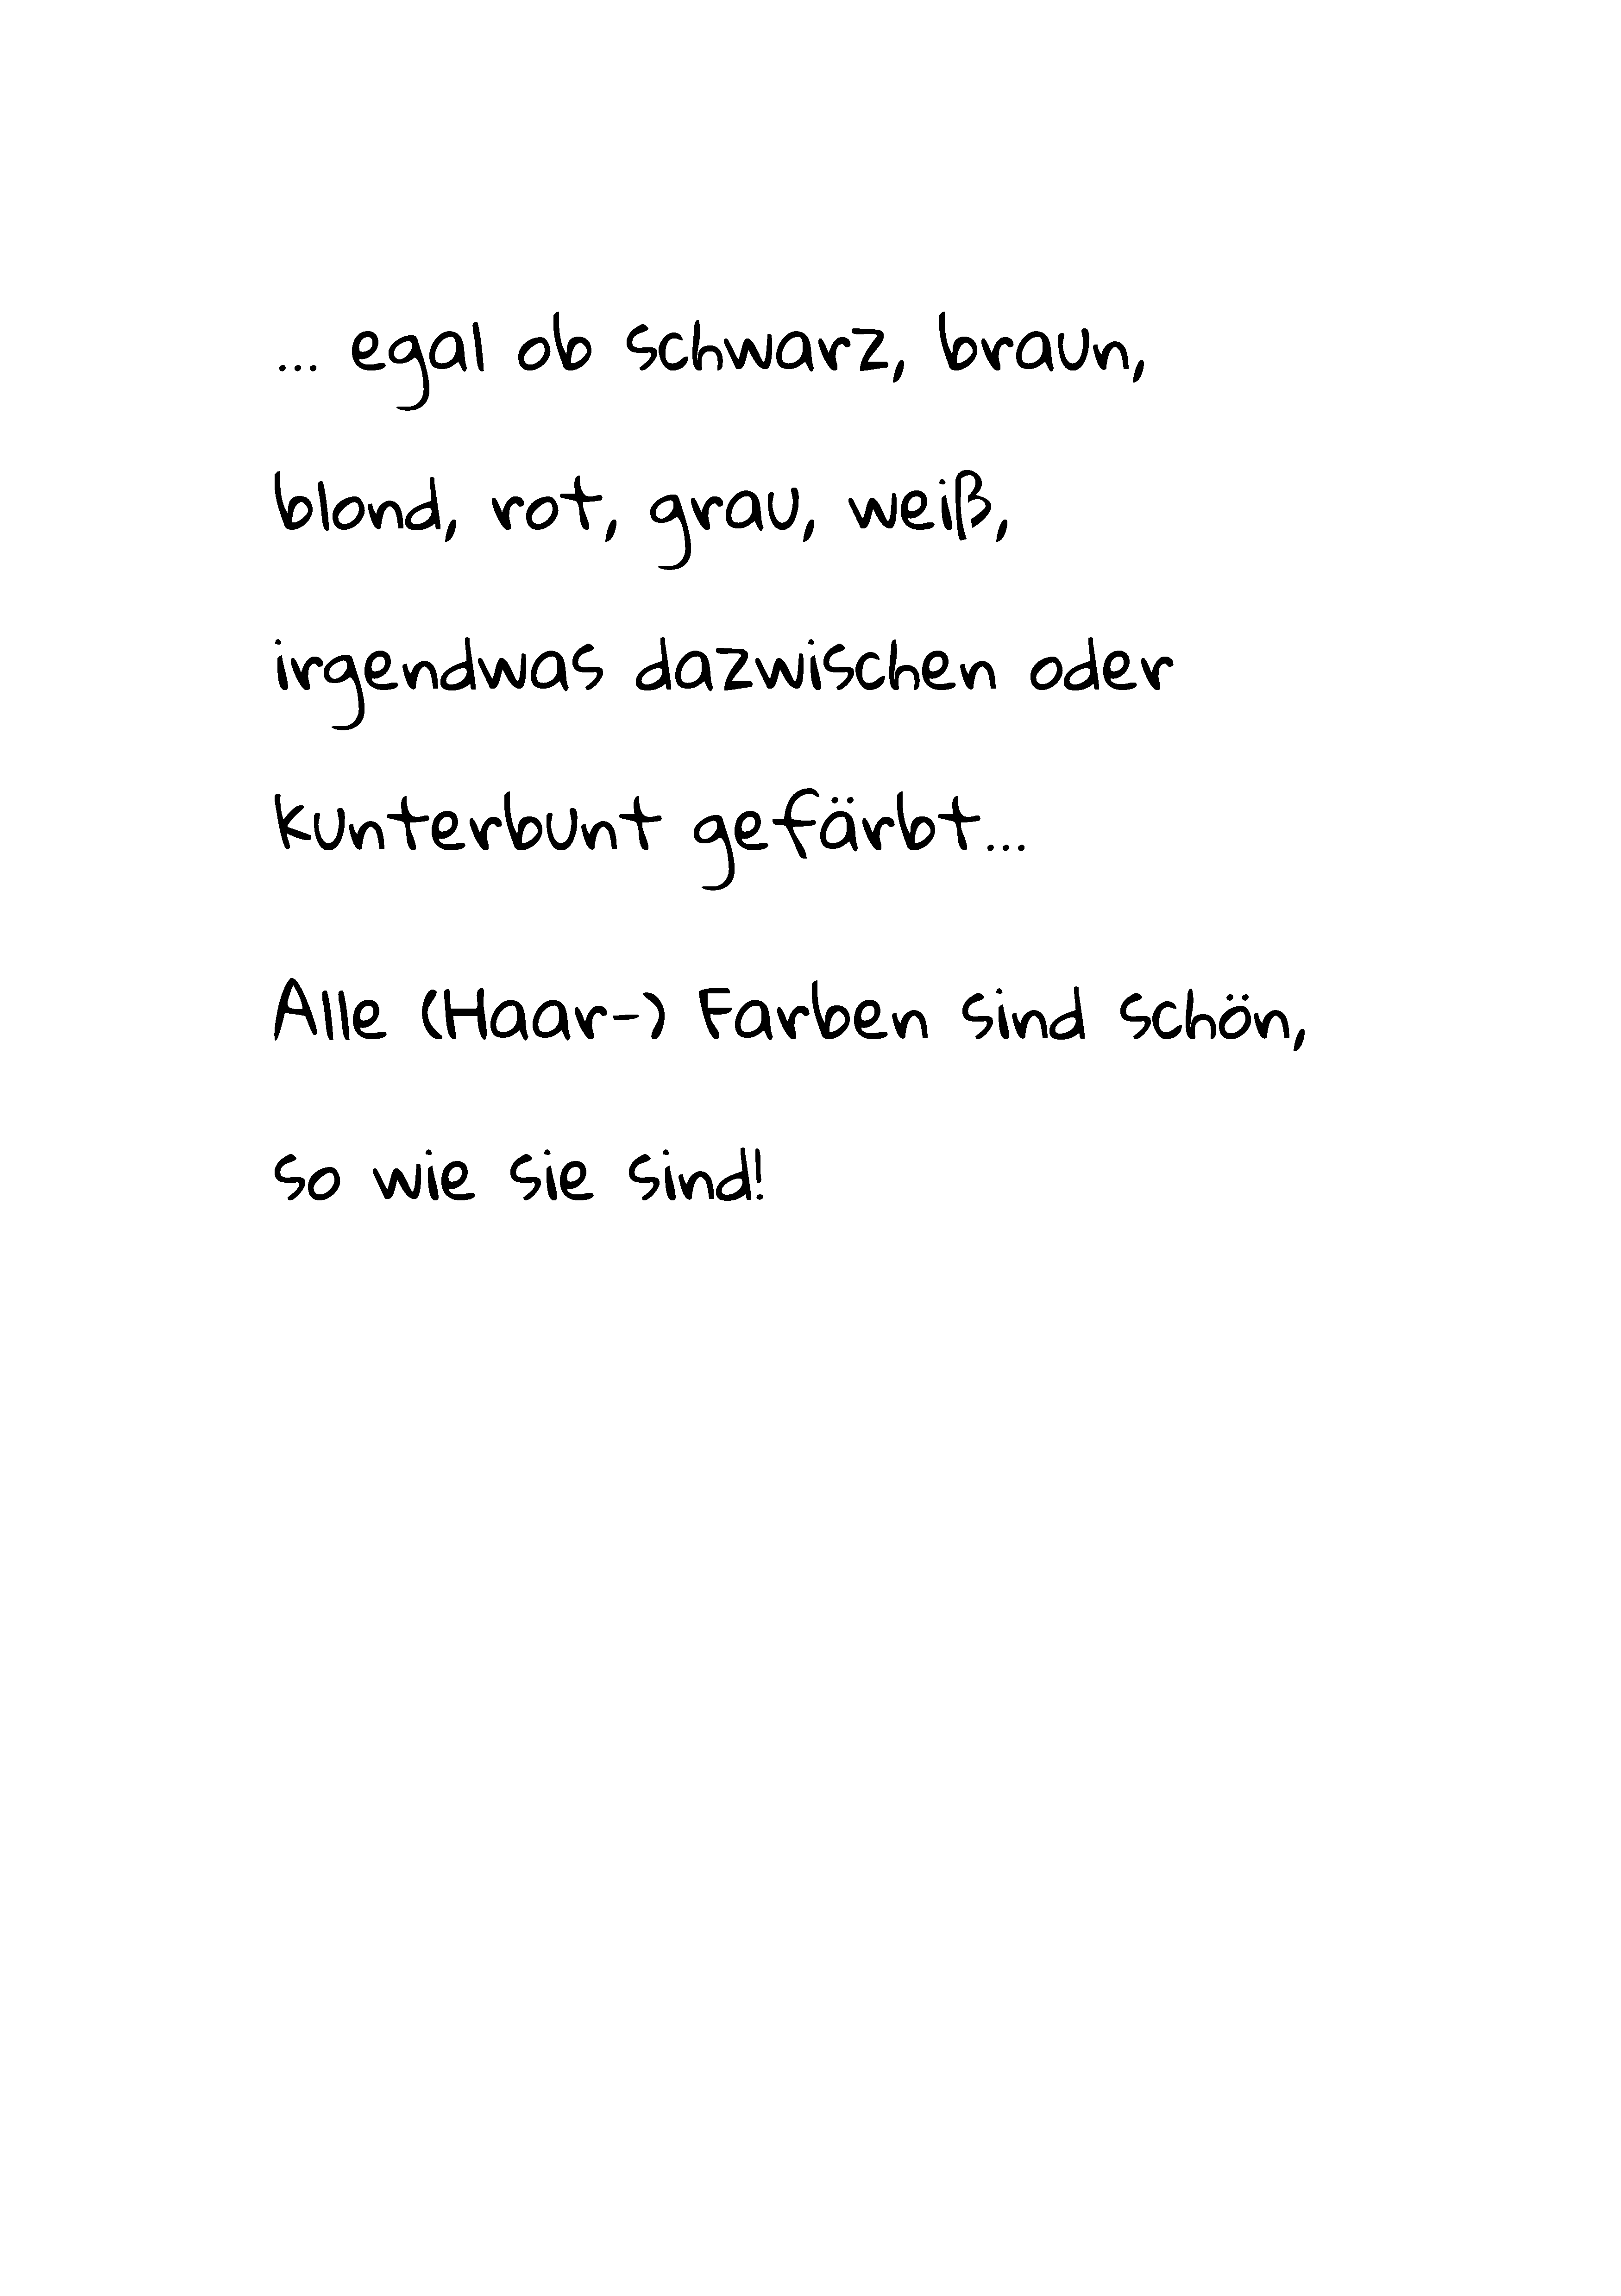 ... egal ob schwarz, braun,
blond, rot, grau, weiß,
irgendwas dazwischen oder
kunterbunt gefärbt...
Alle (Haar-) Farben sind schön,
so wie sie sind!